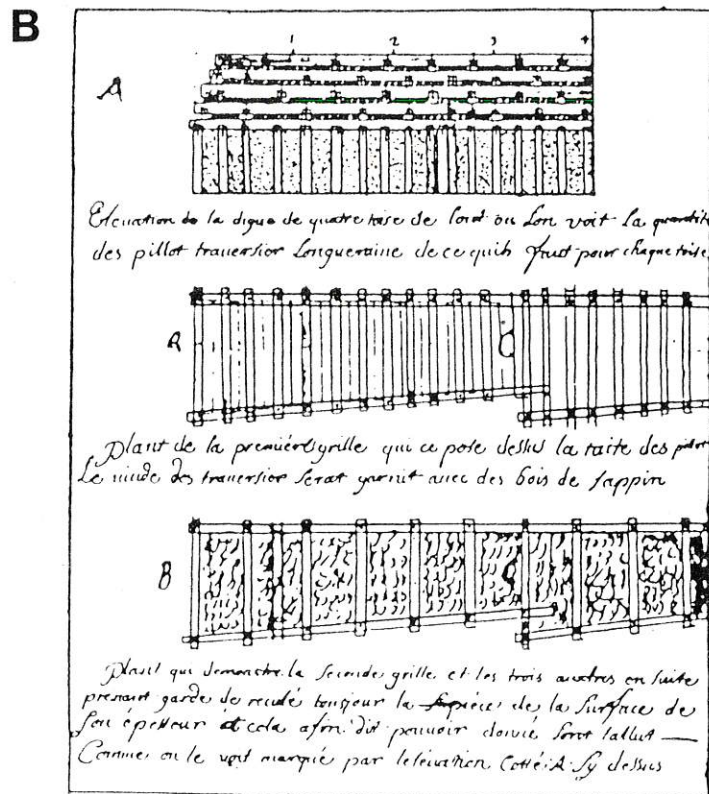 B
1 2 3 4
A
Elevation de la digue de quatre toise de lont ou Lon voit La quantité
des pillot traversior Longueraine de ce quil faut pour chaque toise
R
Plant de la premiére grille qui ce pose dessus la taite des pillot
Le vuide des traversior serat garnit avec des bois de sappin
B
Plant qui demontre la seconde grille et les trois autres en suite
prenant garde de reculé tousjour la de la surface de
son épesseur et cela afin dit pouvoir donné sont tallut
Comme on le voit marquée par lelevation Cotté A Sy dessus